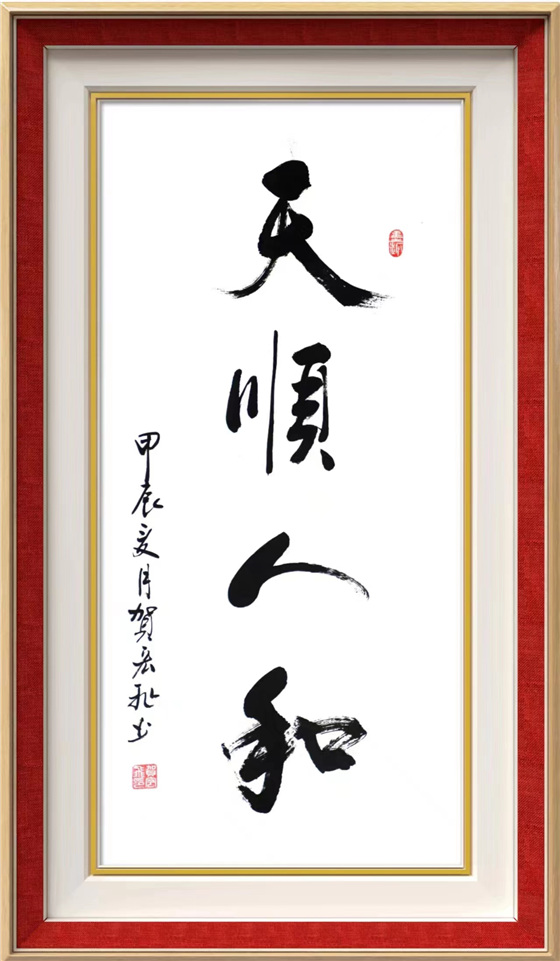 天順人和
甲辰夏月賀宏軍书